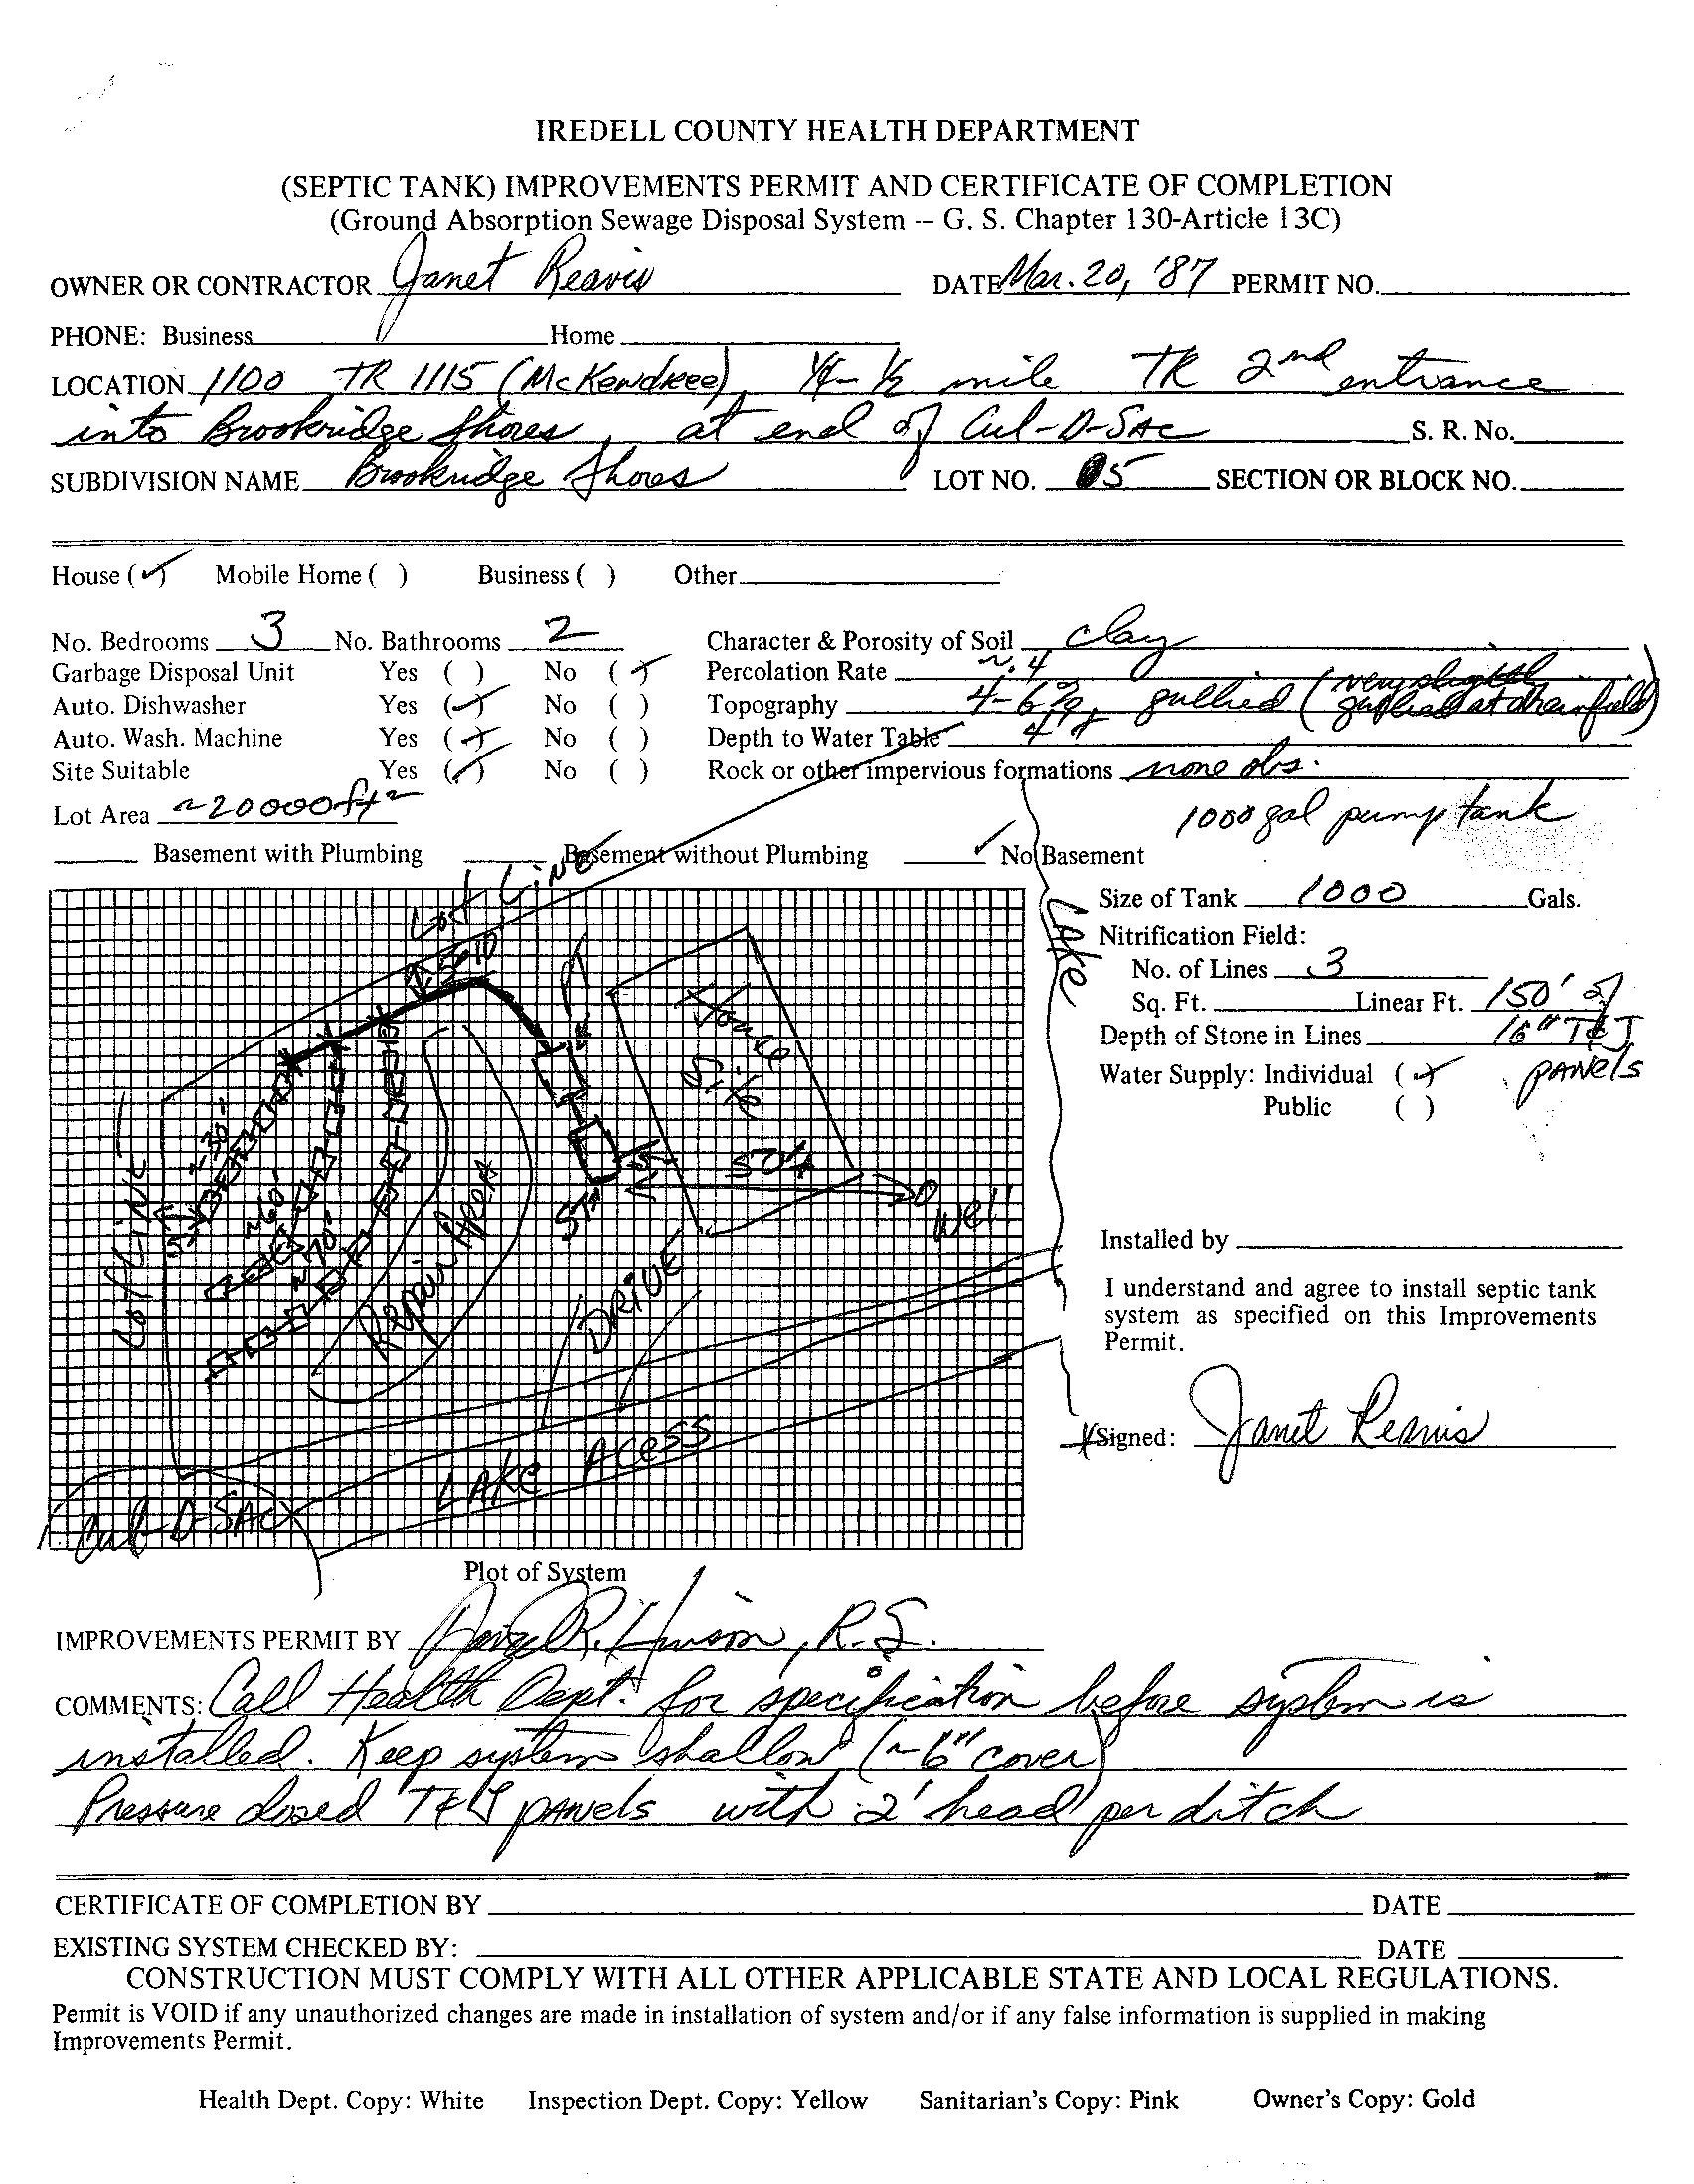 IREDELL COUNTY HEALTH DEPARTMENT
(SEPTIC TANK) IMPROVEMENTS PERMIT AND CERTIFICATE OF COMPLETION
(Ground Absorption Sewage Disposal System -- G. S. Chapter 130-Article 13C)
OWNER OR CONTRACTOR Janet Reavis DATE Mar. 20, '87 PERMIT NO.
PHONE: Business Home
LOCATION 1100 TR 1115 (McKendree), 1/4 - 1/2 mile TR 2nd entrance
into Brookridge Shores, at end of Cul-D-Sac S. R. No.
SUBDIVISION NAME Brookridge Shores LOT NO. 5 SECTION OR BLOCK NO.
House (✓) Mobile Home ( ) Business ( ) Other
No. Bedrooms 3 No. Bathrooms 2 Character & Porosity of Soil clay
Garbage Disposal Unit Yes ( ) No (✓) Percolation Rate ~.4
Auto. Dishwasher Yes (✓) No ( ) Topography 4-6%, gullied (very slightly gullied at drainfield)
Auto. Wash. Machine Yes (✓) No ( ) Depth to Water Table 4'+
Site Suitable Yes (✓) No ( ) Rock or other impervious formations none obs.
Lot Area ~20000 ft²
1000 gal pump tank
Basement with Plumbing Basement without Plumbing ✓ No Basement
Lot Line
Lake
Size of Tank 1000 Gals.
Nitrification Field:
No. of Lines 3
Sq. Ft. Linear Ft. 150' of
Depth of Stone in Lines 16" T&J
panels
Water Supply: Individual (✓)
Public ( )
SOLID
PT
House
Site
Lot Line
~30'
~60'
~70'
5'
Repair Area
ST
5'
50'+
Well
DRIVE
LAKE ACESS
Cul-D-SAC
Installed by
I understand and agree to install septic tank
system as specified on this Improvements
Permit.
Signed: Janet Reavis
Plot of System
IMPROVEMENTS PERMIT BY R.S.
COMMENTS: Call Health Dept. for specification before system is
installed. Keep system shallow (~6" cover)
Pressure dosed T&J panels with 2' head per ditch
CERTIFICATE OF COMPLETION BY DATE
EXISTING SYSTEM CHECKED BY: DATE
CONSTRUCTION MUST COMPLY WITH ALL OTHER APPLICABLE STATE AND LOCAL REGULATIONS.
Permit is VOID if any unauthorized changes are made in installation of system and/or if any false information is supplied in making
Improvements Permit.
Health Dept. Copy: White Inspection Dept. Copy: Yellow Sanitarian's Copy: Pink Owner's Copy: Gold